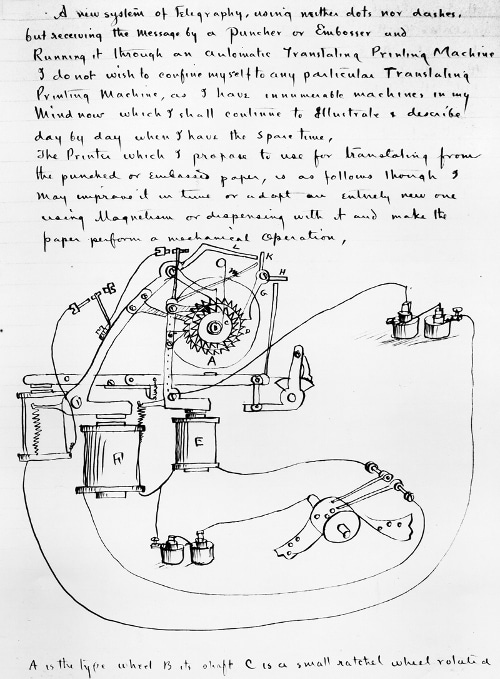 A new system of Telegraphy, using neither dots nor dashes,
but receiving the message by a Puncher or Embosser and
Running it through an automatic Translating Printing Machine
I do not wish to confine myself to any particular Translating
Printing Machine, as I have innumerable machines in my
Mind now which I shall continue to Illustrate & describe
day by day when I have the spare time,
The Printer which I propose to use for translating from
the punched or Embossed paper, is as follows though I
may improve it in time or adapt an entirely new one
using Magnetism or dispensing with it and make the
paper perform a mechanical operation,
L
K
H
G
B
C
D
A
E
F
A is the type wheel B its shaft C is a small ratchet wheel rotated